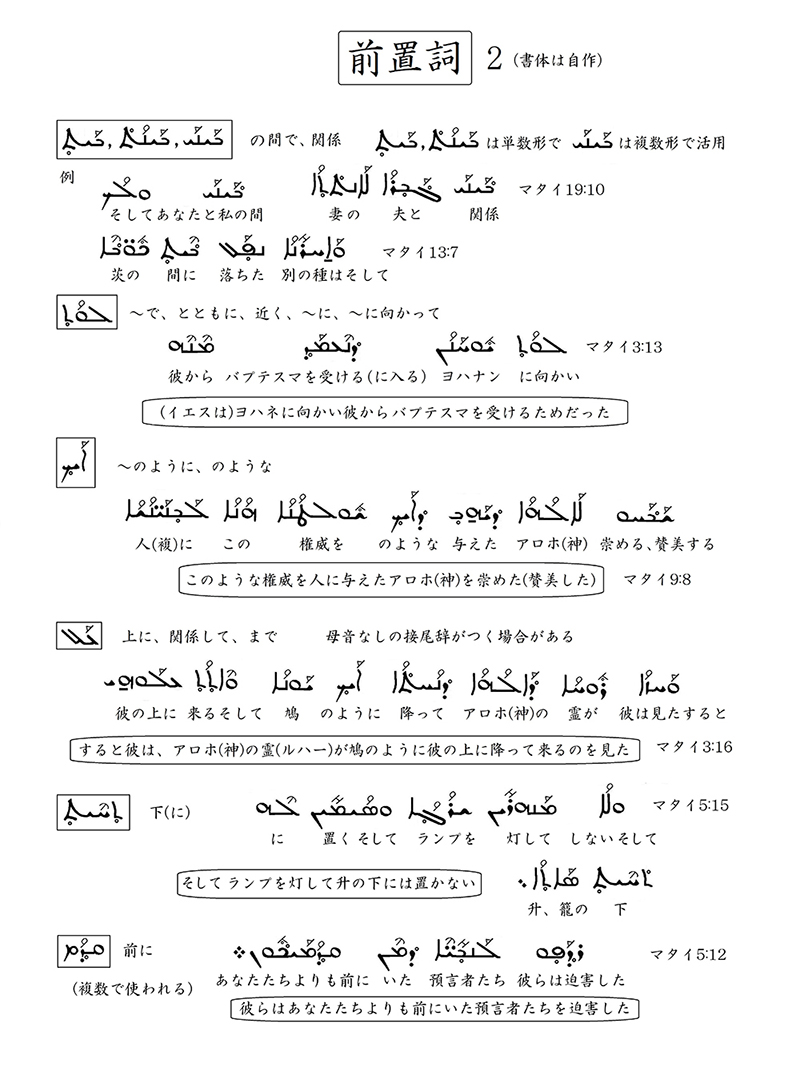 前置詞 2 (書体は自作)
ܒܝܢܝ, ܒܝܢܬ, ܒܝܬ の間で、関係 ܒܝܢܬ, ܒܝܬ は単数形で ܒܝܢܝ は複数形で活用
例
ܒܝܢܝ ܓܒܪܐ ܠܐܢܬܬܐ ܒܝܢܝ ܘܠܟ マタイ19:10
そしてあなたと私の間 妻の 夫と 関係
ܘܐܚܪܢܐ ܢܦܠ ܒܝܬ ܟܘܒܐ マタイ13:7
茨の 間に 落ちた 別の種はそして
ܠܘܬ ～で、とともに、近く、～に、～に向かって
ܠܘܬ ܝܘܚܢܢ ܕܢܥܡܕ ܡܢܗ マタイ3:13
彼から バプテスマを受ける(に入る) ヨハナン に向かい
(イエスは)ヨハネに向かい彼からバプテスマを受けるためだった
ܐܝܟ ～のように、のような
ܫܒܚܘ ܠܐܠܗܐ ܕܝܗܒ ܕܐܝܟ ܫܘܠܛܢܐ ܗܢܐ ܠܒܢܝܢܫܐ
人(複)に この 権威を のような 与えた アロホ(神) 崇める、賛美する
このような権威を人に与えたアロホ(神)を崇めた(賛美した) マタイ9:8
ܥܠ 上に、関係して、まで 母音なしの接尾辞がつく場合がある
ܘܚܙܐ ܪܘܚܐ ܕܐܠܗܐ ܕܢܚܬܐ ܐܝܟ ܝܘܢܐ ܘܐܬܬ ܥܠܘܗܝ
彼の上に 来るそして 鳩 のように 降って アロホ(神)の 霊が 彼は見たすると
すると彼は、アロホ(神)の霊(ルハー)が鳩のように彼の上に降って来るのを見た マタイ3:16
ܬܚܝܬ 下(に) ܘܠܐ ܡܢܗܪܝܢ ܫܪܓܐ ܘܣܝܡܝܢ ܠܗ マタイ5:15
に 置くそして ランプを 灯して しないそして
ܬܚܝܬ ܣܐܬܐ
そしてランプを灯して升の下には置かない
升、籠の 下
ܩܕܡ 前に ܪܕܦܘ ܠܢܒܝܐ ܕܡܢ ܩܕܡܝܟܘܢ マタイ5:12
(複数で使われる) あなたたちよりも前に いた 預言者たち 彼らは迫害した
彼らはあなたたちよりも前にいた預言者たちを迫害した